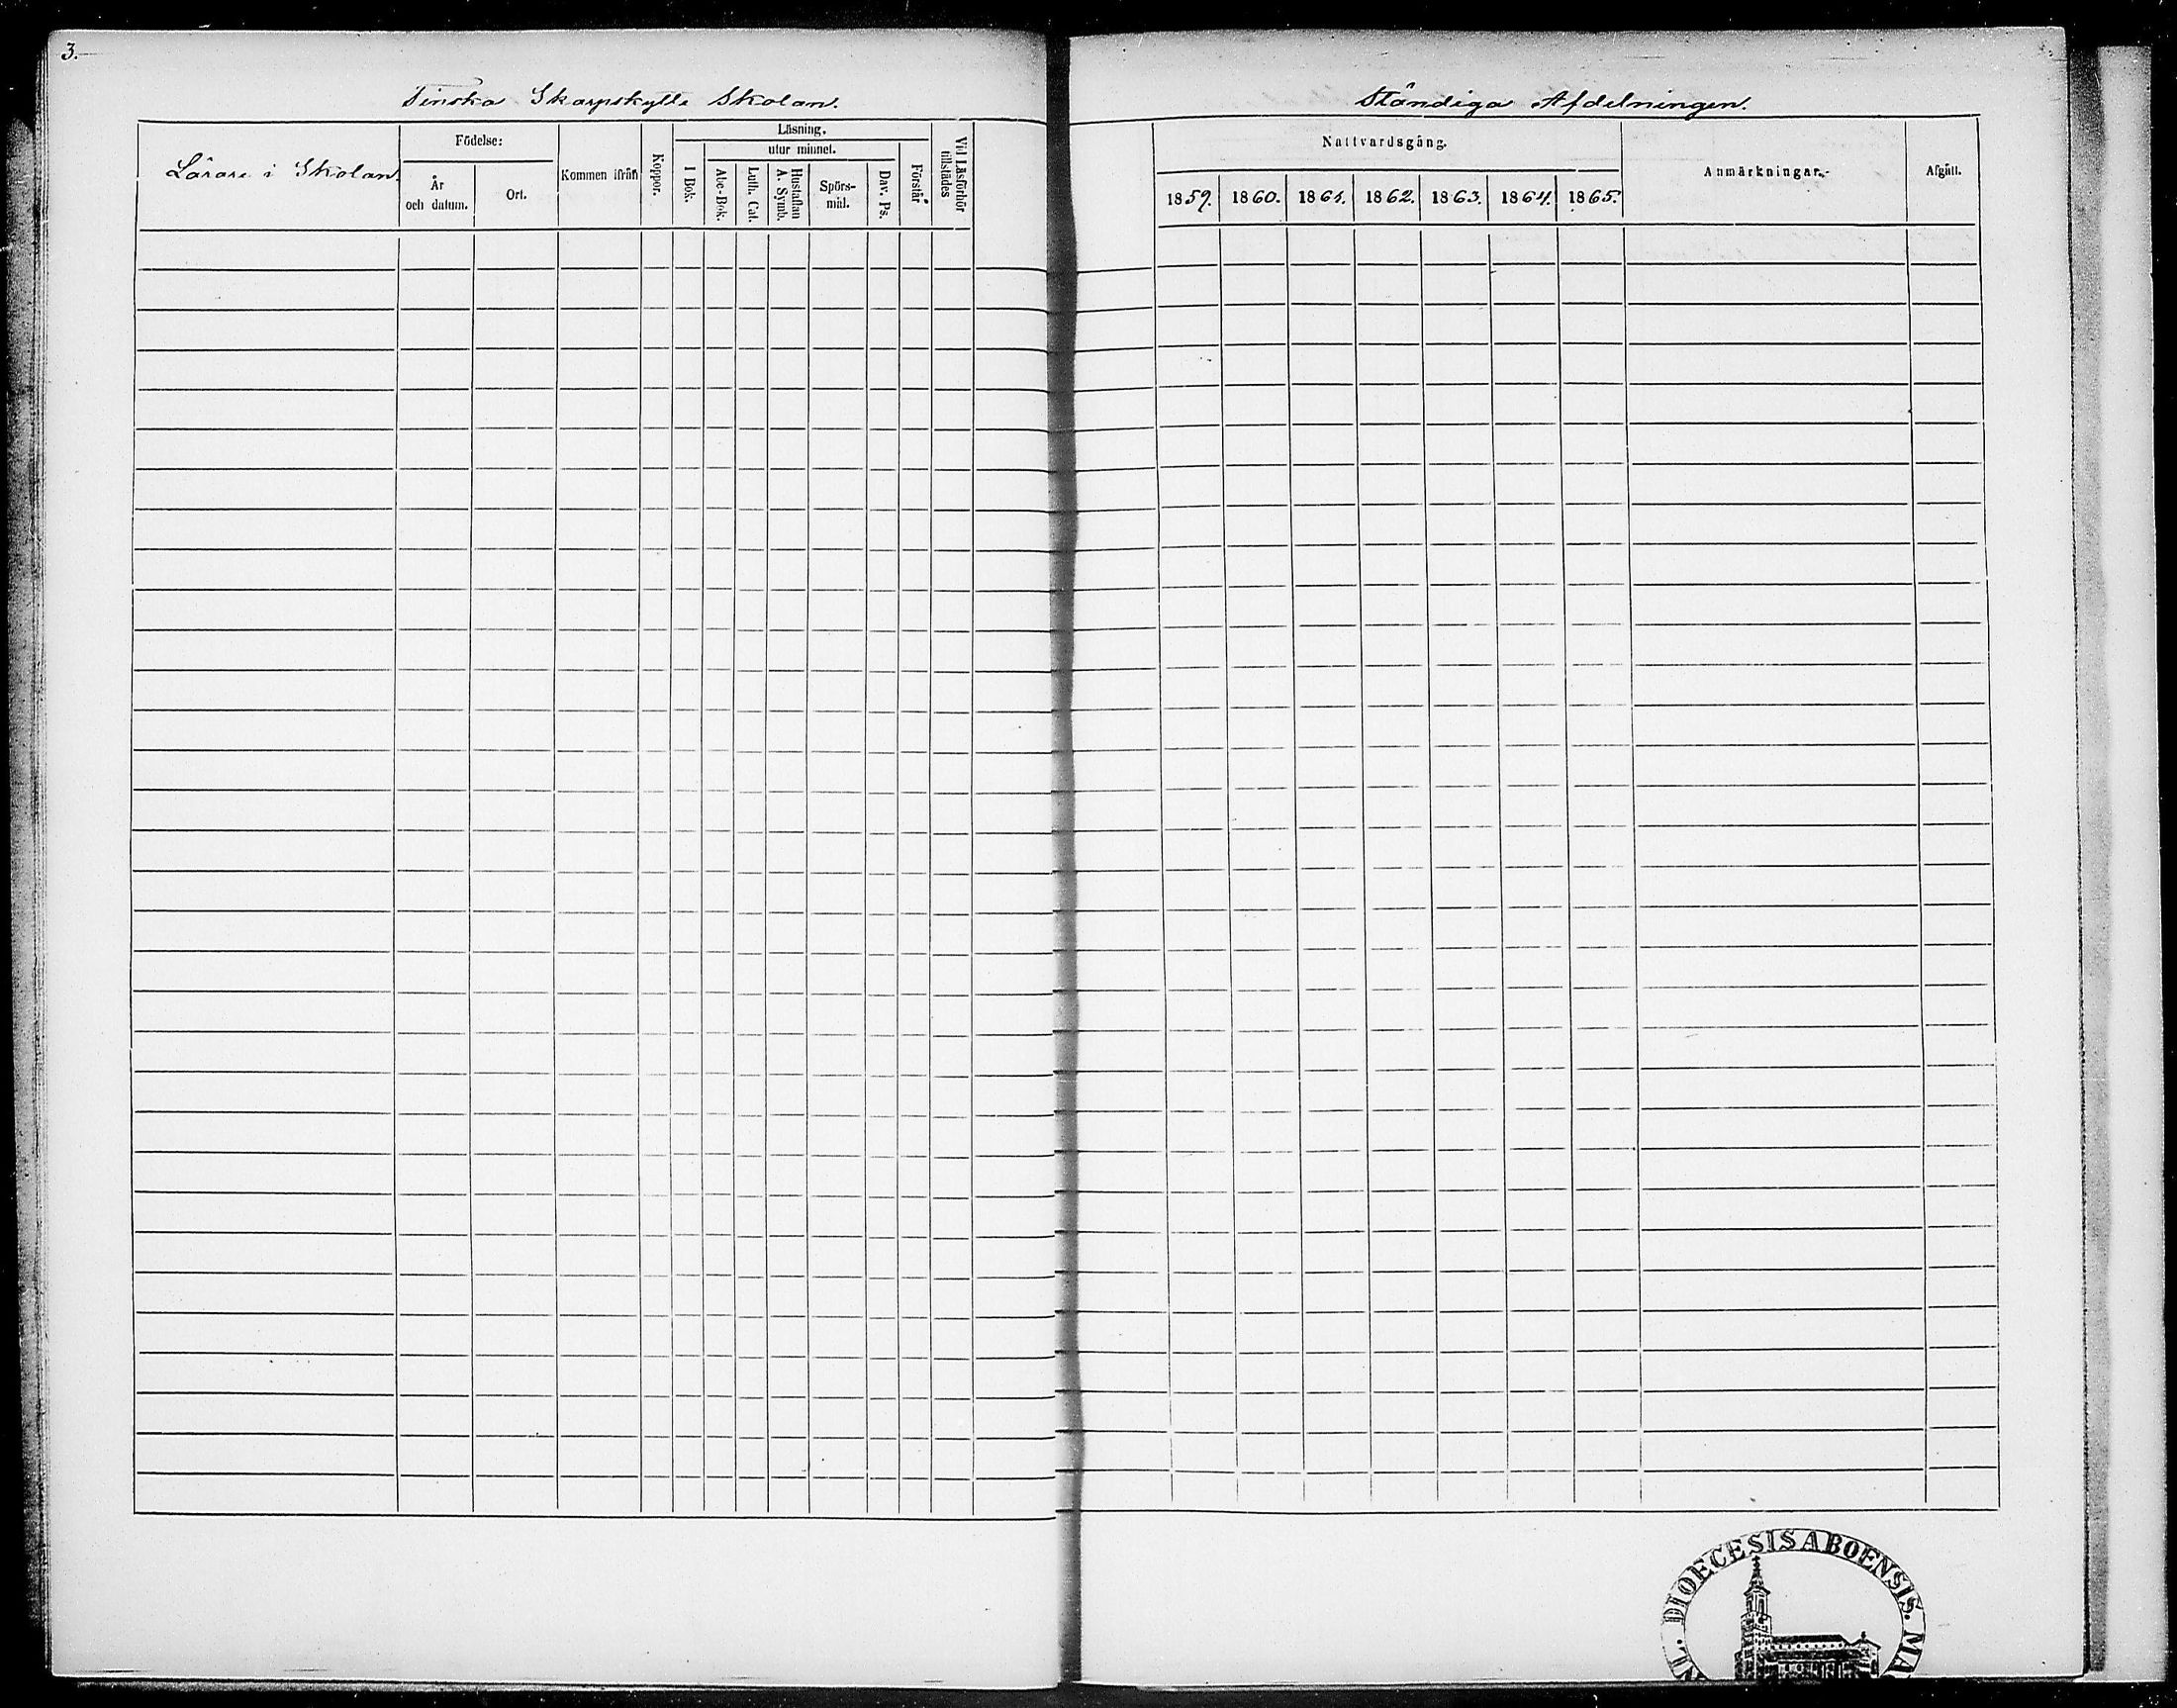 3.
Finska Skarpskytte Skolan.
Ständiga Afdelningen.
Lärare i Skolan.
Födelse:
År och datum.
Ort.
Kommen ifrån
Koppor.
Läsning.
utur minnet.
I Bok.
Abc-Bok.
Luth. Cat.
Hustaflan A. Symb.
Spörs-
mål.
Dav. Ps.
Förstår
Vid Läsförhör tillstädes
Nattvardsgång.
1859. 1860. 1861. 1862. 1863. 1864. 1865.
Anmärkningar.
Afgått.
DIOECESIS ABOENSIS.